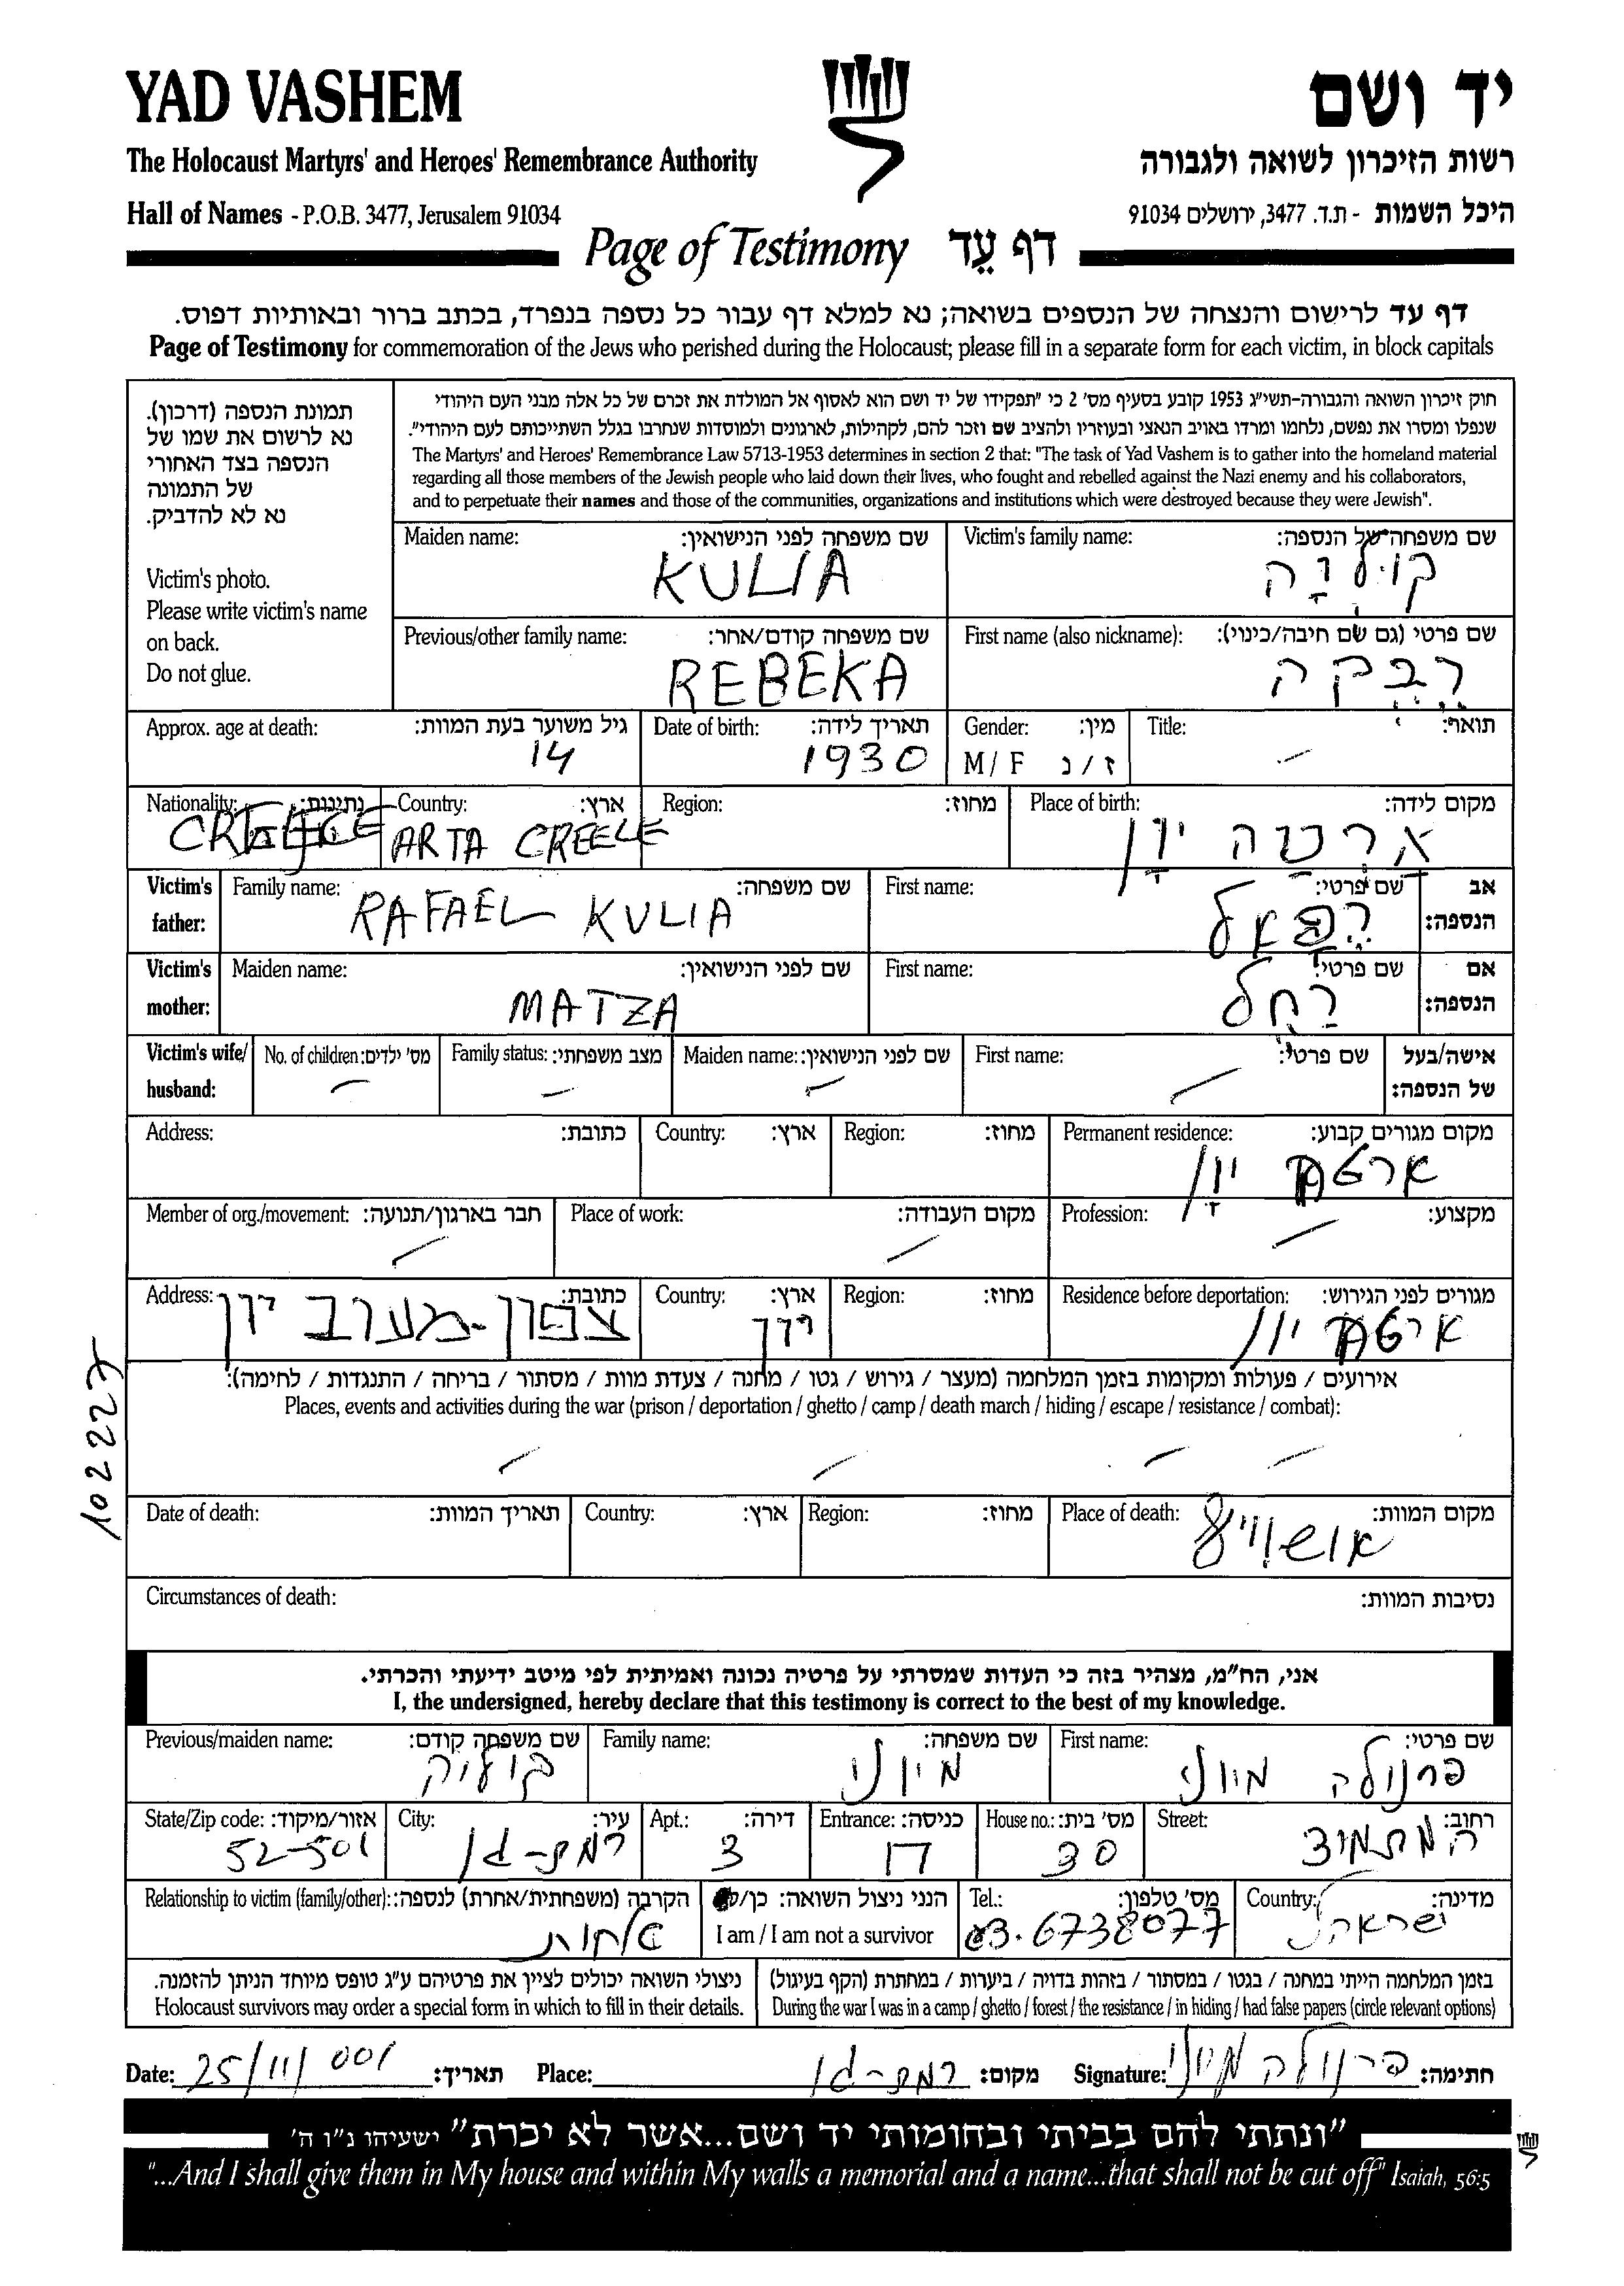 YAD VASHEM יד ושם
The Holocaust Martyrs' and Heroes' Remembrance Authority רשות הזיכרון לשואה ולגבורה
Hall of Names - P.O.B. 3477, Jerusalem 91034 היכל השמות - ת.ד. 3477, ירושלים 91034
Page of Testimony דף עֵד
דף עד לרישום והנצחה של הנספים בשואה; נא למלא דף עבור כל נספה בנפרד, בכתב ברור ובאותיות דפוס.
Page of Testimony for commemoration of the Jews who perished during the Holocaust; please fill in a separate form for each victim, in block capitals
תמונת הנספה (דרכון).
נא לרשום את שמו של
הנספה בצד האחורי
של התמונה
נא לא להדביק.
Victim's photo.
Please write victim's name
on back.
Do not glue.
חוק זיכרון השואה והגבורה-תשי"ג 1953 קובע בסעיף מס' 2 כי "תפקידו של יד ושם הוא לאסוף אל המולדת את זכרם של כל אלה מבני העם היהודי
שנפלו ומסרו את נפשם, נלחמו ומרדו באויב הנאצי ובעוזריו ולהציב שם וזכר להם, לקהילות, לארגונים ולמוסדות שנחרבו בגלל השתייכותם לעם היהודי".
The Martyrs' and Heroes' Remembrance Law 5713-1953 determines in section 2 that: "The task of Yad Vashem is to gather into the homeland material
regarding all those members of the Jewish people who laid down their lives, who fought and rebelled against the Nazi enemy and his collaborators,
and to perpetuate their names and those of the communities, organizations and institutions which were destroyed because they were Jewish".
Maiden name: שם משפחה לפני הנישואין: Victim's family name: שם משפחה של הנספה:
KULIA קוליה
Previous/other family name: שם משפחה קודם/אחר: First name (also nickname): שם פרטי (גם שם חיבה/כינוי):
REBEKA רבקה
Approx. age at death: גיל משוער בעת המוות: Date of birth: תאריך לידה: Gender: מין: Title: תואר:
14 1930 M / F ז / נ
Nationality: נתינות: Country: ארץ: Region: מחוז: Place of birth: מקום לידה:
ARTA CREELE ארטה יון
Victim's father: Family name: שם משפחה: First name: שם פרטי: אב הנספה:
RAFAEL KULIA רפאל
Victim's mother: Maiden name: שם לפני הנישואין: First name: שם פרטי: אם הנספה:
MATZA רחל
Victim's wife/ husband: No. of children: מס' ילדים: Family status: מצב משפחתי: Maiden name: שם לפני הנישואין: First name: שם פרטי: אישה/בעל של הנספה:
Address: כתובת: Country: ארץ: Region: מחוז: Permanent residence: מקום מגורים קבוע:
ארטה יון
Member of org./movement: חבר בארגון/תנועה: Place of work: מקום העבודה: Profession: מקצוע:
Address: כתובת: Country: ארץ: Region: מחוז: Residence before deportation: מגורים לפני הגירוש:
צפון-מערב יון יון ארטה יון
אירועים / פעולות ומקומות בזמן המלחמה (מעצר / גירוש / גטו / מחנה / צעדת מוות / מסתור / בריחה / התנגדות / לחימה):
Places, events and activities during the war (prison / deportation / ghetto / camp / death march / hiding / escape / resistance / combat):
102227
Date of death: תאריך המוות: Country: ארץ: Region: מחוז: Place of death: מקום המוות:
אושוויץ
Circumstances of death: נסיבות המוות:
אני, הח"מ, מצהיר בזה כי העדות שמסרתי על פרטיה נכונה ואמיתית לפי מיטב ידיעתי והכרתי.
I, the undersigned, hereby declare that this testimony is correct to the best of my knowledge.
Previous/maiden name: שם משפחה קודם: Family name: שם משפחה: First name: שם פרטי:
קוליה מיוני פרנולה מיוני
State/Zip code: אזור/מיקוד: City: עיר: Apt.: דירה: Entrance: כניסה: House no.: מס' בית: Street: רחוב:
52-501 רמת-גן 3 ד 30 המתמיד
Relationship to victim (family/other): הקרבה (משפחתית/אחרת) לנספה: הנני ניצול השואה: כן/ Tel.: מס' טלפון: Country: מדינה:
אחות I am / I am not a survivor 03.6738077 ישראל
ניצולי השואה יכולים לציין את פרטיהם ע"ג טופס מיוחד הניתן להזמנה. בזמן המלחמה הייתי במחנה / בגטו / במסתור / בזהות בדויה / ביערות / במחתרת (הקף בעיגול)
Holocaust survivors may order a special form in which to fill in their details. During the war I was in a camp / ghetto / forest / the resistance / in hiding / had false papers (circle relevant options)
Date: 25/11/001 תאריך: Place: רמת-גן מקום: Signature: פרנולה מיוני חתימה:
"ונתתי להם בביתי ובחומותי יד ושם...אשר לא יכרת" ישעיהו נ"ו ה'
"...And I shall give them in My house and within My walls a memorial and a name...that shall not be cut off" Isaiah, 56:5